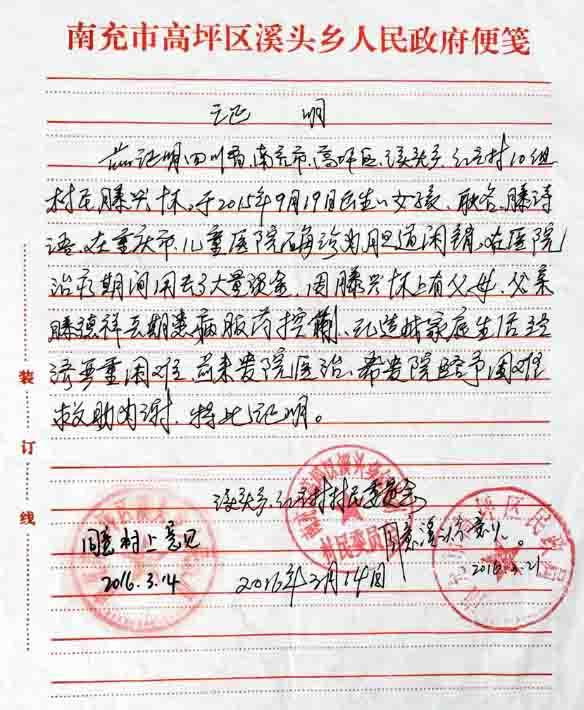 南充市高坪区溪头乡人民政府便笺
证 明
兹证明四川省,南充市,高坪区,溪头乡 村10组
村民滕兴怀,于2015年9月19日出生一女孩,取名,滕诗
语,在重庆市,儿童医院确诊为胆道闭锁,在医院
治疗期间用去了大量资金,因滕兴怀上有父母,父亲
滕德祥长期患病服药控制,已造成家庭生活经
济严重困难,前来贵院医治,希贵院给予困难
救助为谢,特此证明。
溪头乡 村村民委员会
同意村上意见
2016.3.14
2016年3月14日
同意溪头乡意见。
2016.3.21
村民委员
装
订
线